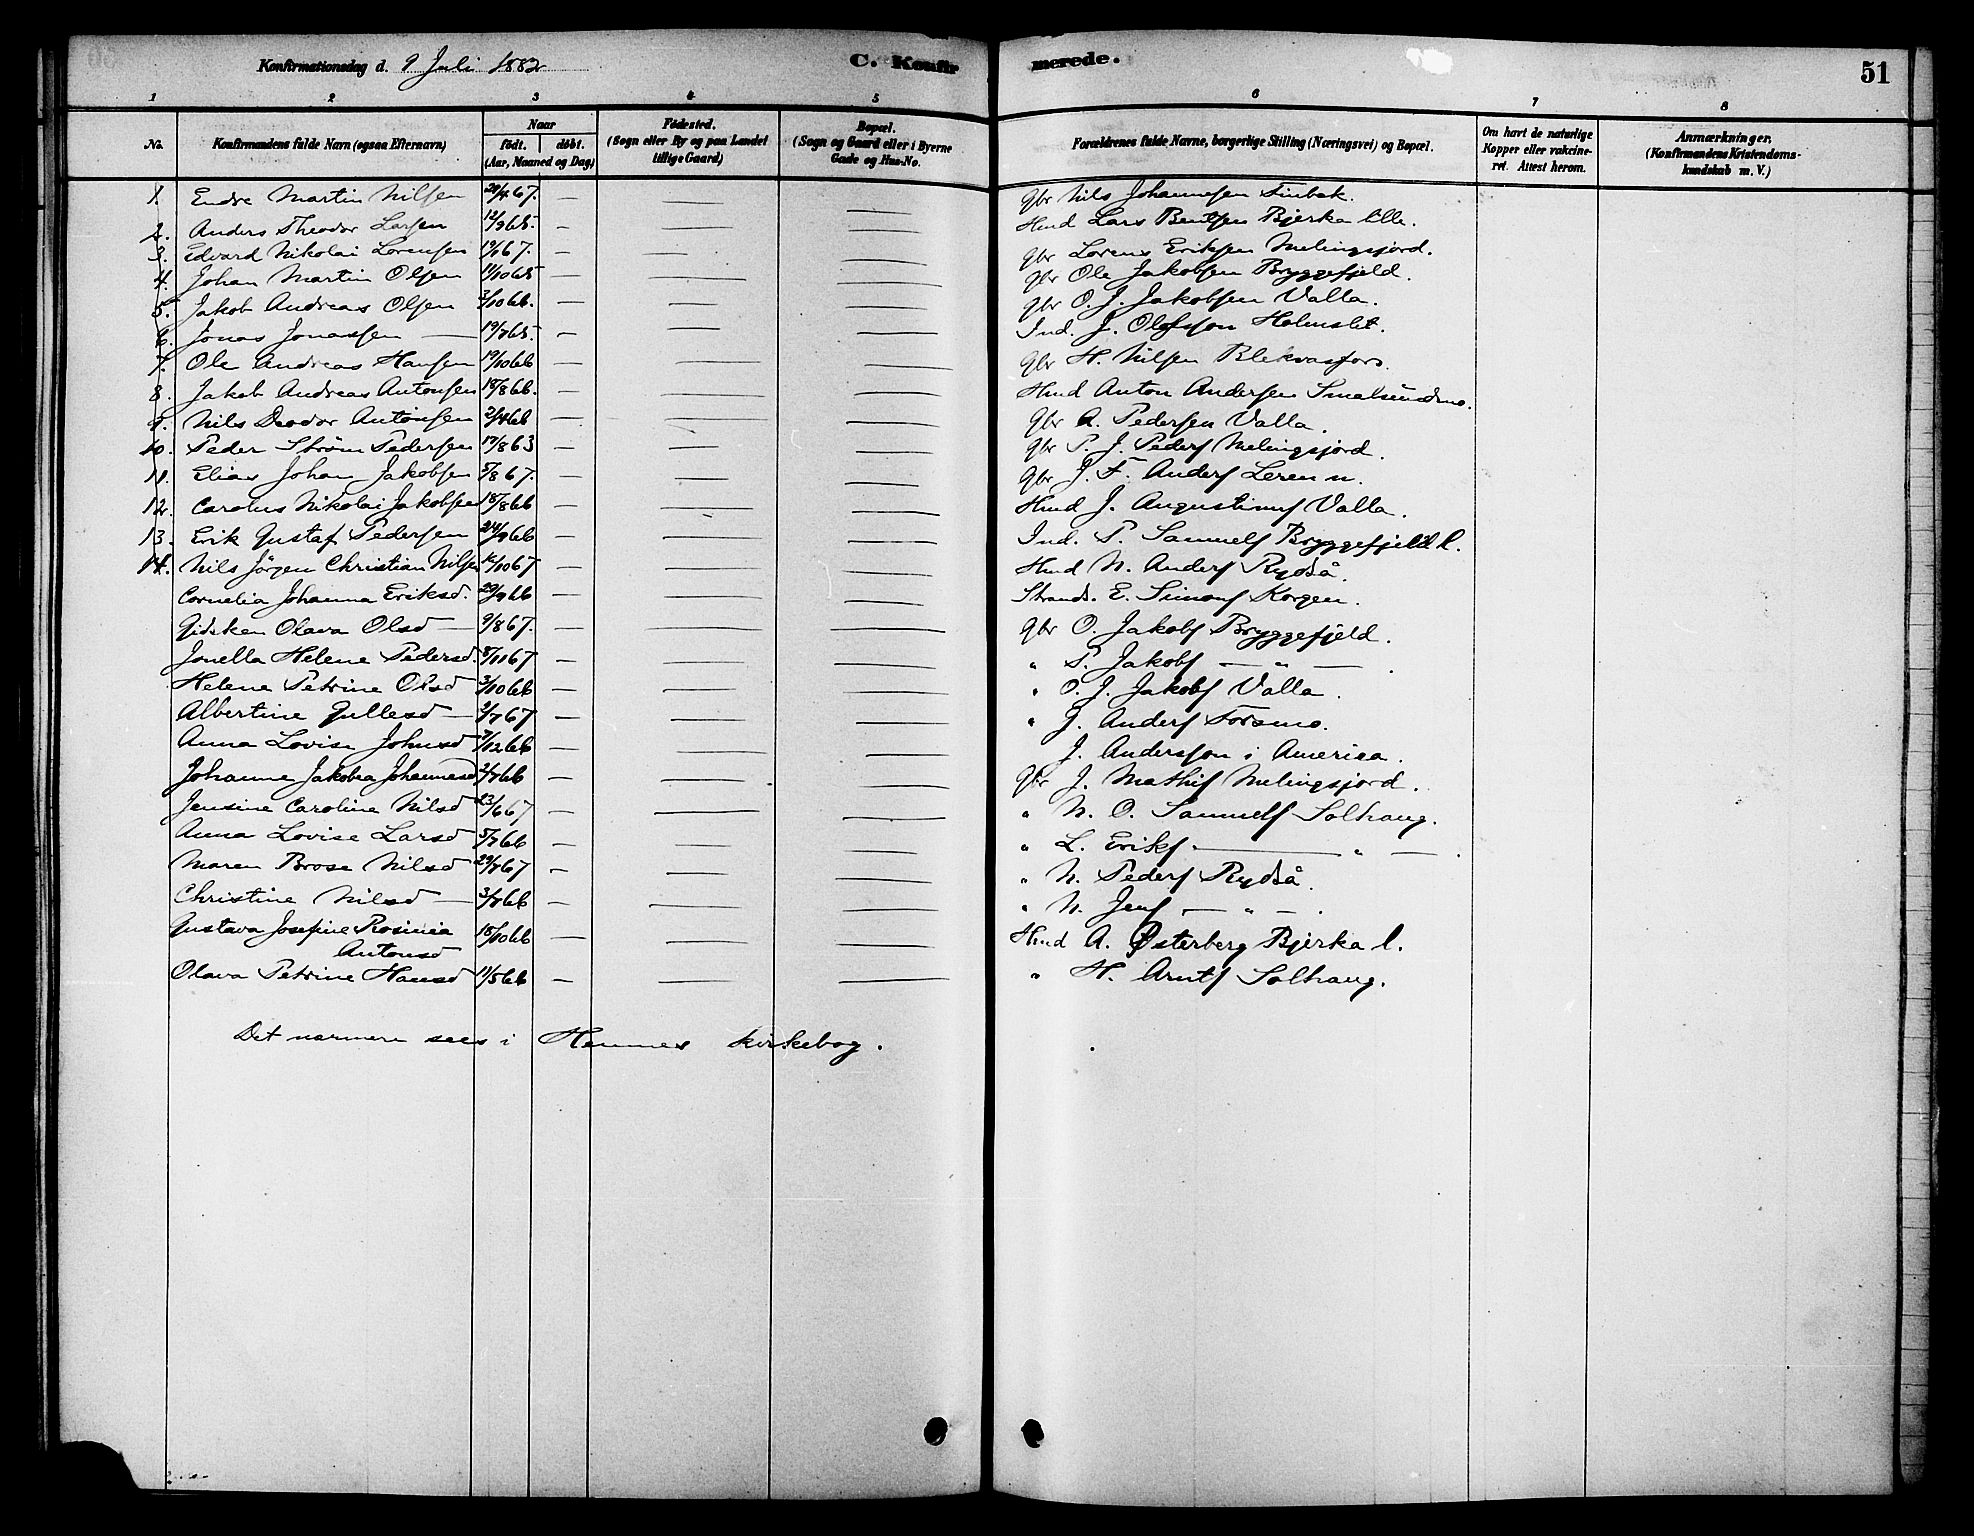 Konfirmationsdag d. 9 Juli 1882
C. Konfir
merede.
51
1 2 3 4 5 6 7 8
No.
Konfirmandens fulde Navn (ogsaa Efternavn)
Naar
født. døbt.
(Aar, Maaned og Dag)
Fødested.
(Sogn eller By og paa Landet
tillige Gaard)
Bopæl.
(Sogn og Gaard eller i Byerne
Gade og Hus-No.
Forældrenes fulde Navne, borgerlige Stilling (Næringsvei) og Bopæl.
Om havt de naturlige
Kopper eller vakcine-
ret. Attest herom.
Anmærkninger.
(Konfirmandens Kristendoms-
kundskab m. V.)
1. Endre Martin Nilsen 67. — — — Gbr Nils Johannesen Finbak.
2. Anders Theodor Larsen 12/9 65. — — — Hmd Lars Bentsen Bjerka lille.
3. Edvard Nikolai Lorensen 67. — — — Gbr Lorens Eriksen Melingsjord.
4. Johan Martin Olsen 11/10 65 — — — Gbr Ole Jakobsen Bryggefjeld.
5. Jakob Andreas Olsen 3/10 66. — — — Gbr O. J. Jakobsen Valla.
6. Jonas Jonassen — 19/7 65. — — — Ind. J. Olofsson Holmslet.
7. Ole Andreas Hansen 19/10 66 — — — Gbr H. Nilsen Blekvasfors.
8. Jakob Andreas Antonsen 18/8 66. — — — Hmd Anton Andersen Smalsundmo.
9. Nils Deodor Antonsen 2/4 66 — — — Gbr A. Pedersen Valla.
10. Peder Strøm Pedersen 17/8 63 — — — Gbr P. J. Peders Melingsjord.
11. Elias Johan Jakobsen 5/8 67. — — — Gbr J. F. Anders Leren n.
12. Carolus Nikolai Jakobsen 18/8 66 — — — Hmd J. Augustinus Valla.
13. Erik Gustaf Pedersen 24/9 66 — — — Ind. P. Samuels Bryggefjeld l.
14. Nils Jörgen Christian Nilsen /10 67 — — — Hmd N. Anders Rydså.
Cornelia Johanna Eriksd. 29/9 66 — — — Strands. E. Simons Korgen.
Gidsken Olava Olsd — 9/8 67. — — — Gbr O. Jakobs Bryggefjeld.
Jonella Helene Pedersd. 8/11 67 — — — " P. Jakobs — " — .
Helene Petrine Olsd 3/10 66 — — — " O. J. Jakobs Valla.
Albertine Jullesd — 2/7 67 — — — " J. Anders Forsmo.
Anna Lovise Johnsd 7/12 66 — — — J. Andersson i America.
Johanne Jakobea Johannesd 2/7 66 — — — Gbr J. Mathis Melingsjord.
Jensine Caroline Nilsd 23/6 67 — — — " N. O. Samuels Solhaug.
Anna Lovise Larsd 5/7 66 — — — " L. Eriks — " — .
Maren Brose Nilsd 29/7 67 — — — " N. Peders Rydså.
Christine Nilsd — 3/7 66 — — — " N. Jens — " — .
Gustava Josefine Rosinia
Antonsd 18/10 66 — — — Hmd A. Østerberg Bjerka l.
Olava Petrine Hansd 11/5 66 — — — " H. Arnts Solhaug.
Det nærmere sees i Hemnes kirkebog.